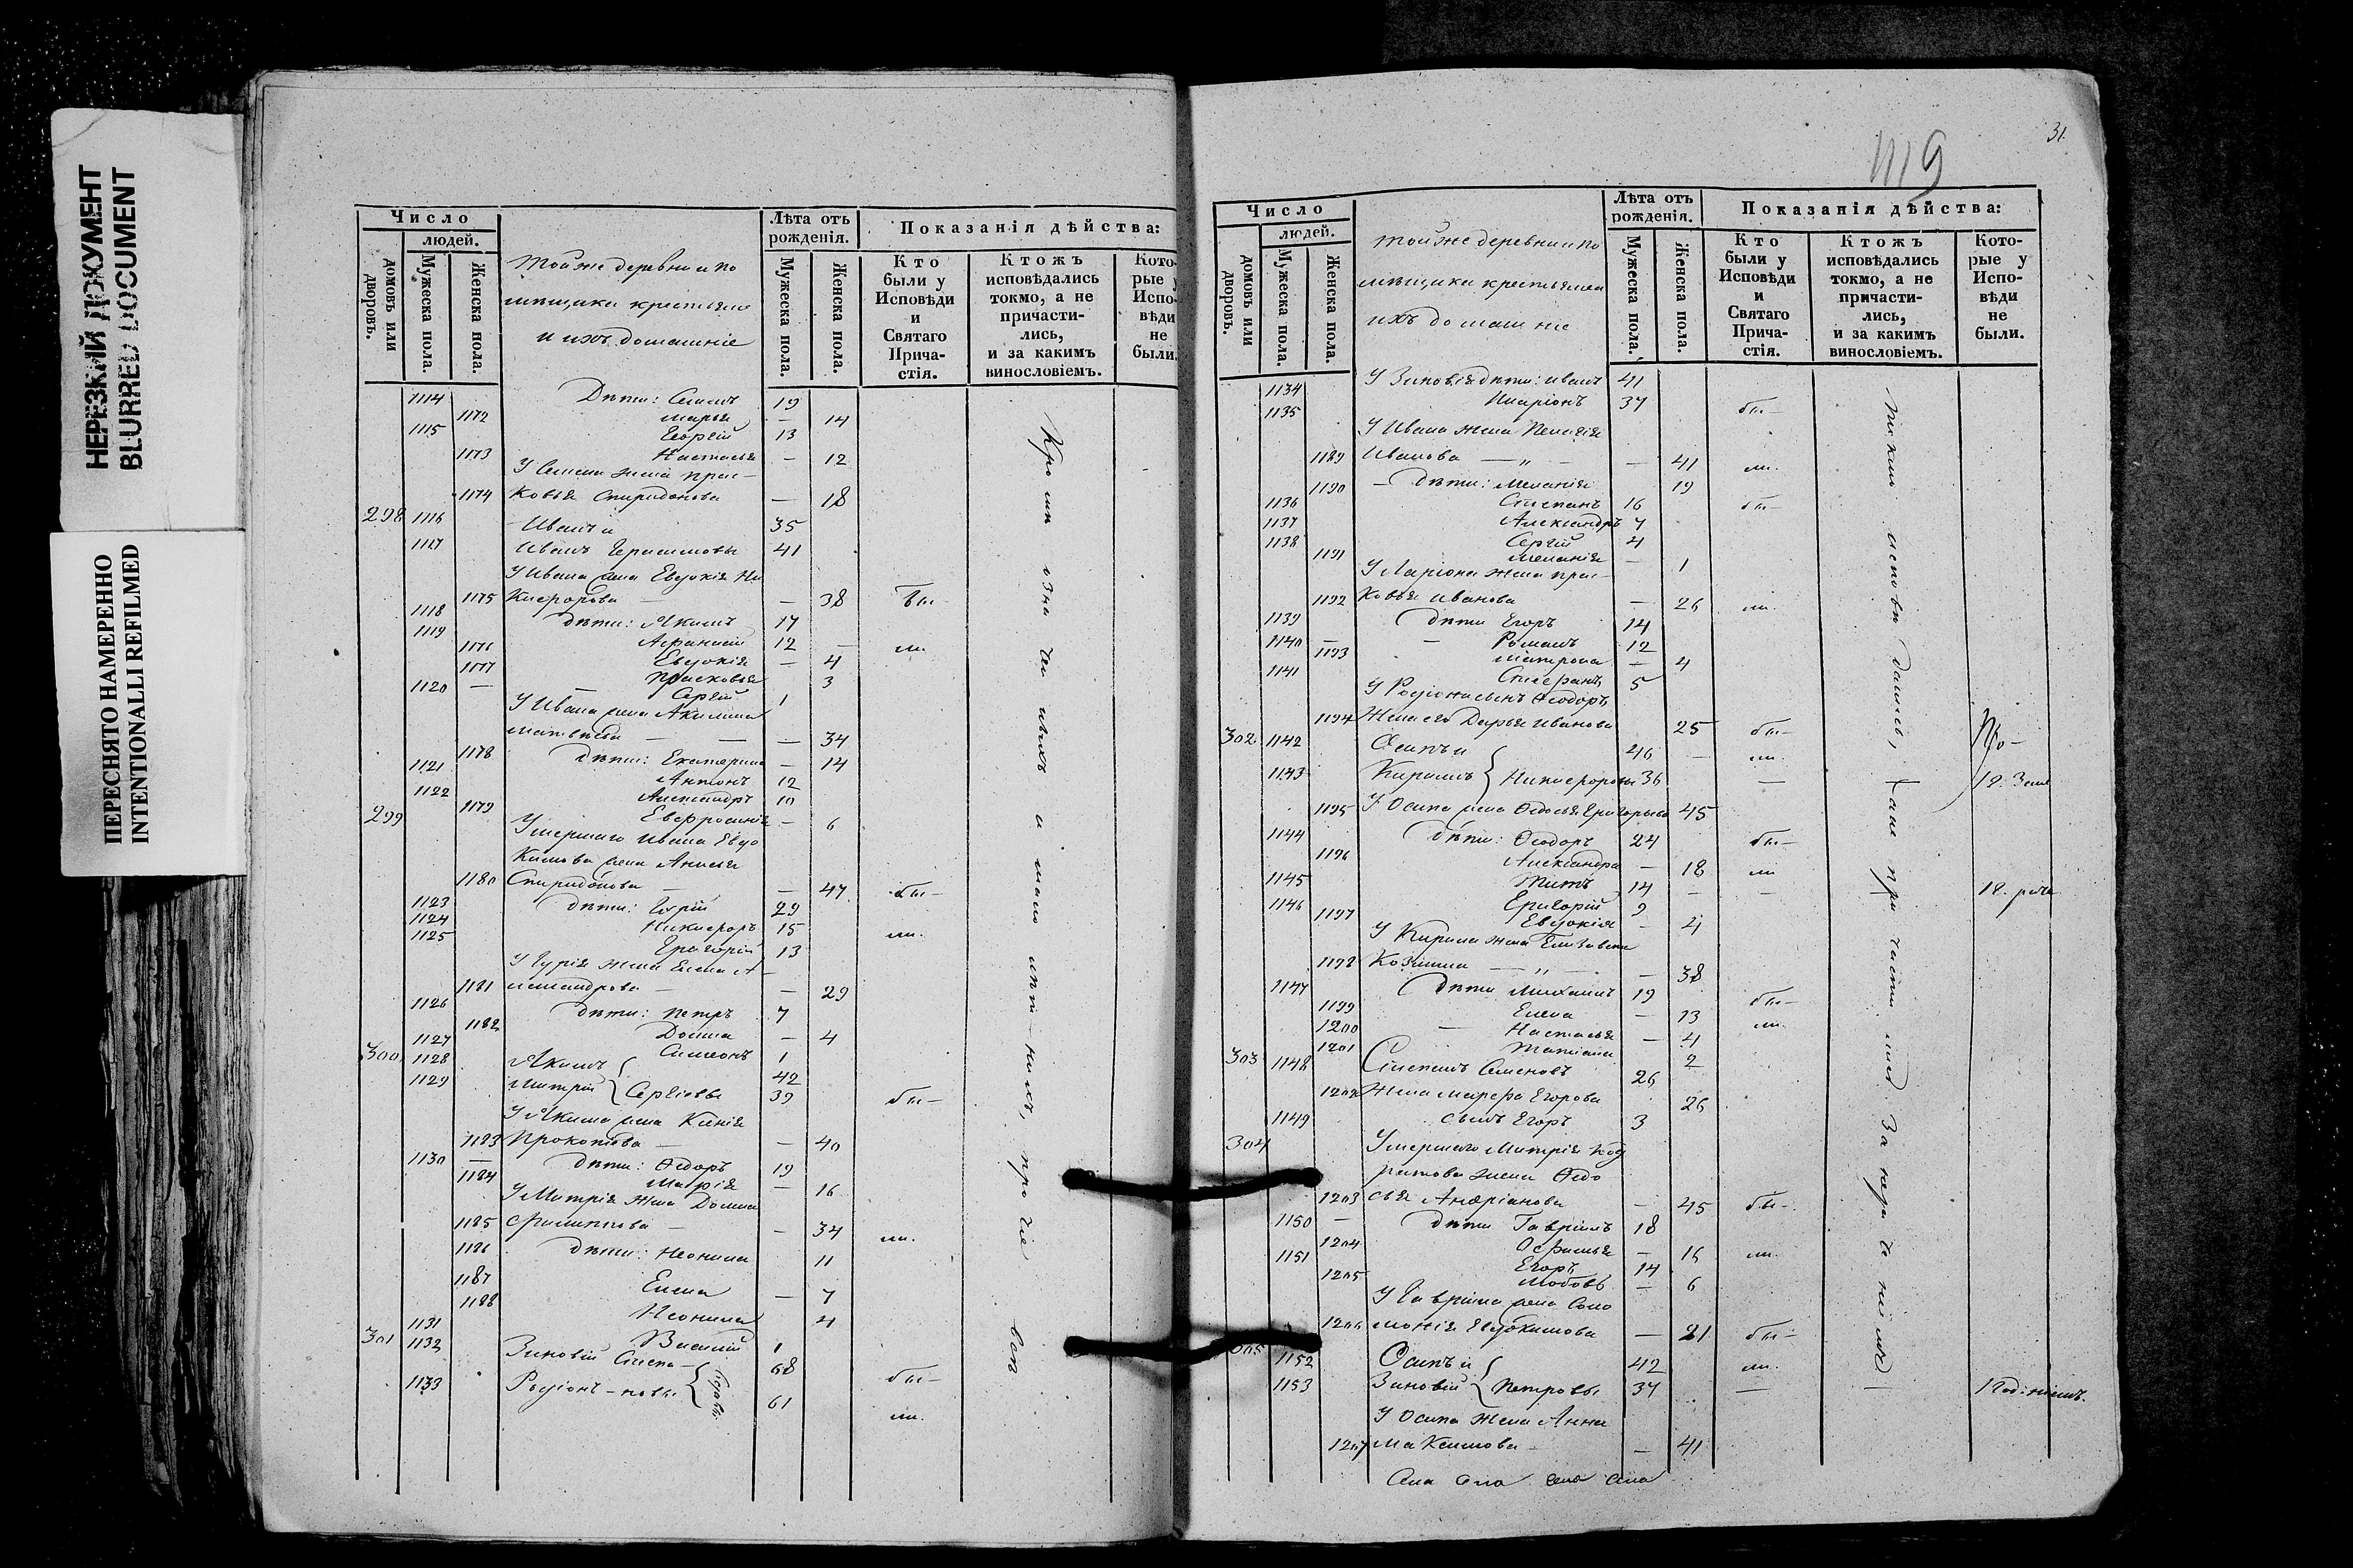 НЕРЕЗКИЙ ДОКУМЕНТ
BLURRED DOCUMENT
ПЕРЕСНЯТО НАМЕРЕННО
INTENTIONALLI REFILMED
Число
людей.
домовъ или дворовъ.
Мужеска пола.
Женска пола.
тойже деревни и по
мѣщика крестьяне
и ихъ домашніе
Лѣта отъ рожденія.
Мужеска пола.
Женска пола.
Показанія дѣйства:
Кто были у Исповѣди и Святаго Прича-стія.
Ктожъ исповѣдались токмо, а не причасти-лись, и за какимъ винословіемъ.
Кото-рые у Испо-вѣди не были.
1114 Дѣти: Семенъ 19
1172 Марья — 14
1115 Георгій 13
1173 Настасья — 12
У Семена жена Прас-
1174 ковья Спиридонова — 18
298 1116 Иванъ и 35
1117 Иванъ Герасимовы 41
У Ивана жена Евдокія Ни
1175 кифорова — 38
1118 Дѣти: Якимъ 17
1119 Афанасій 12
1176 Евдокія — 4
1177 Прасковья 3
1120 — Сергій 1
У Ивана жена Акилина
Матвѣева — — — 34
1178 Дѣти: Екатерина — 14
1121 Антонъ 12
1122 Александръ 10
1179 Евфросинія — 6
299 Умершаго Ивана Евдо
кимова жена Анисья
1180 Спиридонова — — 47 бы-
1123 Дѣти: Гурій 29
1124 Никифоръ 15 ли.
1125 Григорій 13
У Гурія жена Елена А-
1181 лександрова — — 29
1126 Дѣти: Петръ 7
1182 Домна — 4
1127 Симеонъ 1
300 1128 Якимъ 42
1129 Митрій Сергіевы 39 бы-
У Якима жена Ксенія
1183 Прокопова — — 40
1130 — Дѣти: Ѳедоръ 19
1184 Марія — 16
У Митрія жена Домна
1185 Филиппова — — 34 ли.
1186 Дѣти: Неонила 11
1187 Елена — 7
1188 Неонила 4
1131 Василій 1
301 1132 Зиновій Степа- 68 бы-
1133 Родіонъ -новы 61 ли.
31
Число
людей.
домовъ или дворовъ.
Мужеска пола.
Женска пола.
тойже деревни и по
мѣщика крестьяне и
ихъ домашніе
Лѣта отъ рожденія.
Мужеска пола.
Женска пола.
Показанія дѣйства:
Кто были у Исповѣди и Святаго Прича-стія.
Ктожъ исповѣдались токмо, а не причасти-лись, и за какимъ винословіемъ.
Кото-рые у Испо-вѣди не были.
1134 У Зиновія дѣти: Иванъ 41
1135 Иларіонъ 37 бы-
У Ивана жена Пелагія
1189 Иванова — „ — — 41 ли.
1190 — Дѣти: Меланія 19
1136 Степанъ 16 бы-
1137 Александръ 7
1138 Сергій 4
1191 Меланія — 1
У Ларіона жена Прас-
1192 ковья Иванова — 26 ли.
1139 Дѣти Егоръ 14
1140 — — Романъ 12
1193 Матрона — 4
1141 Стефанъ 5
У Родіона сынъ Ѳеодоръ
1194 Жена его Дарья Иванова 25 бы-
302 1142 Осипъ и 46 — ли.
1143 Кирилъ Никифоровы 36 —
1195 У Осипа жена Ѳедосья Григорьева 45
1144 Дѣти: Ѳеодоръ 24 бы-
1196 Александра — 18 ли
1145 Титъ 14 — —
1146 Григорій 9
1197 Евдокія — 4
У Кирила жена Елизавета
1198 Козмина — „ — — 38
1147 Дѣти Михаилъ 19
1199 Елена — 13 бы-
1200 — Настасья — 4 ли.
1201 Татіана 2
303 1148 Степанъ Семеновъ 26
1202 Жена Марфа Егорова 26
1149 сынъ Егоръ 3
304 Умершаго Митрія Код
ратова жена Ѳедо
1203 сья Андріанова — 45 бы-
1150 — Дѣти Гавріилъ 18
1204 Офимья — 16 ли.
1151 Егоръ 14
1205 Любовь — 6
У Гавріила жена Соло
1206 монія Евдокимова — 21 бы-
305 1152 Осипъ и 42 ли.
1153 Зиновій Петровы 37 —
У Осипа жена Анна
1207 Максимова — — 41